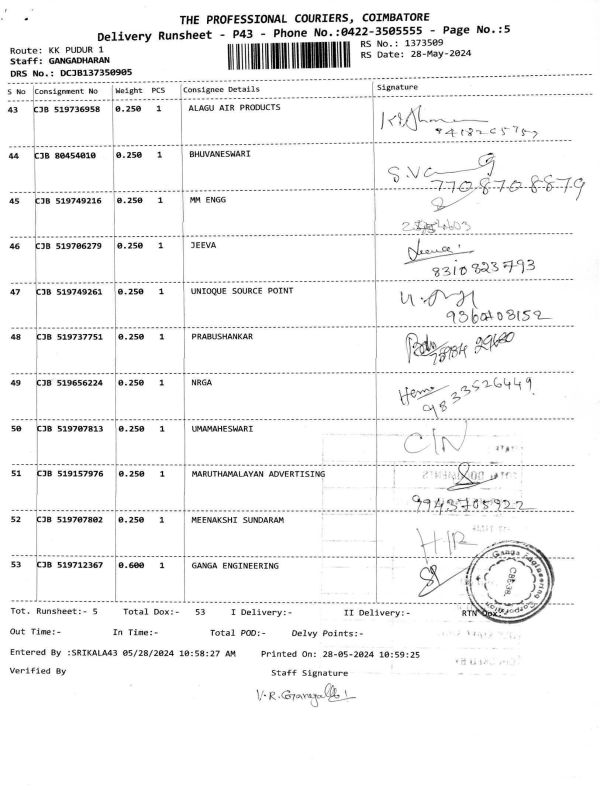 THE PROFESSIONAL COURIERS, COIMBATORE
Delivery Runsheet - P43 - Phone No.:0422-3505555 - Page No.:5
Route: KK PUDUR 1
RS No.: 1373509
Staff: GANGADHARAN
RS Date: 28-May-2024
DRS No.: DCJB137350905
S No Consignment No Weight PCS Consignee Details Signature
43 CJB 519736958 0.250 1 ALAGU AIR PRODUCTS
44 CJB 80454010 0.250 1 BHUVANESWARI
7708708879
45 CJB 519749216 0.250 1 MM ENGG
46 CJB 519706279 0.250 1 JEEVA Jeeva
8310823793
47 CJB 519749261 0.250 1 UNIOQUE SOURCE POINT
9360403152
48 CJB 519737751 0.250 1 PRABUSHANKAR
49 CJB 519656224 0.250 1 NRGA Hema
9833526449
50 CJB 519707813 0.250 1 UMAMAHESWARI C/N
51 CJB 519157976 0.250 1 MARUTHAMALAYAN ADVERTISING
9943705922
52 CJB 519707802 0.250 1 MEENAKSHI SUNDARAM
53 CJB 519712367 0.600 1 GANGA ENGINEERING
Ganga Engineering Corporation
CBE-38.
Tot. Runsheet:- 5 Total Dox:- 53 I Delivery:- II Delivery:- RTN Dox:-
Out Time:- In Time:- Total POD:- Delvy Points:-
Entered By :SRIKALA43 05/28/2024 10:58:27 AM Printed On: 28-05-2024 10:59:25
Verified By Staff Signature